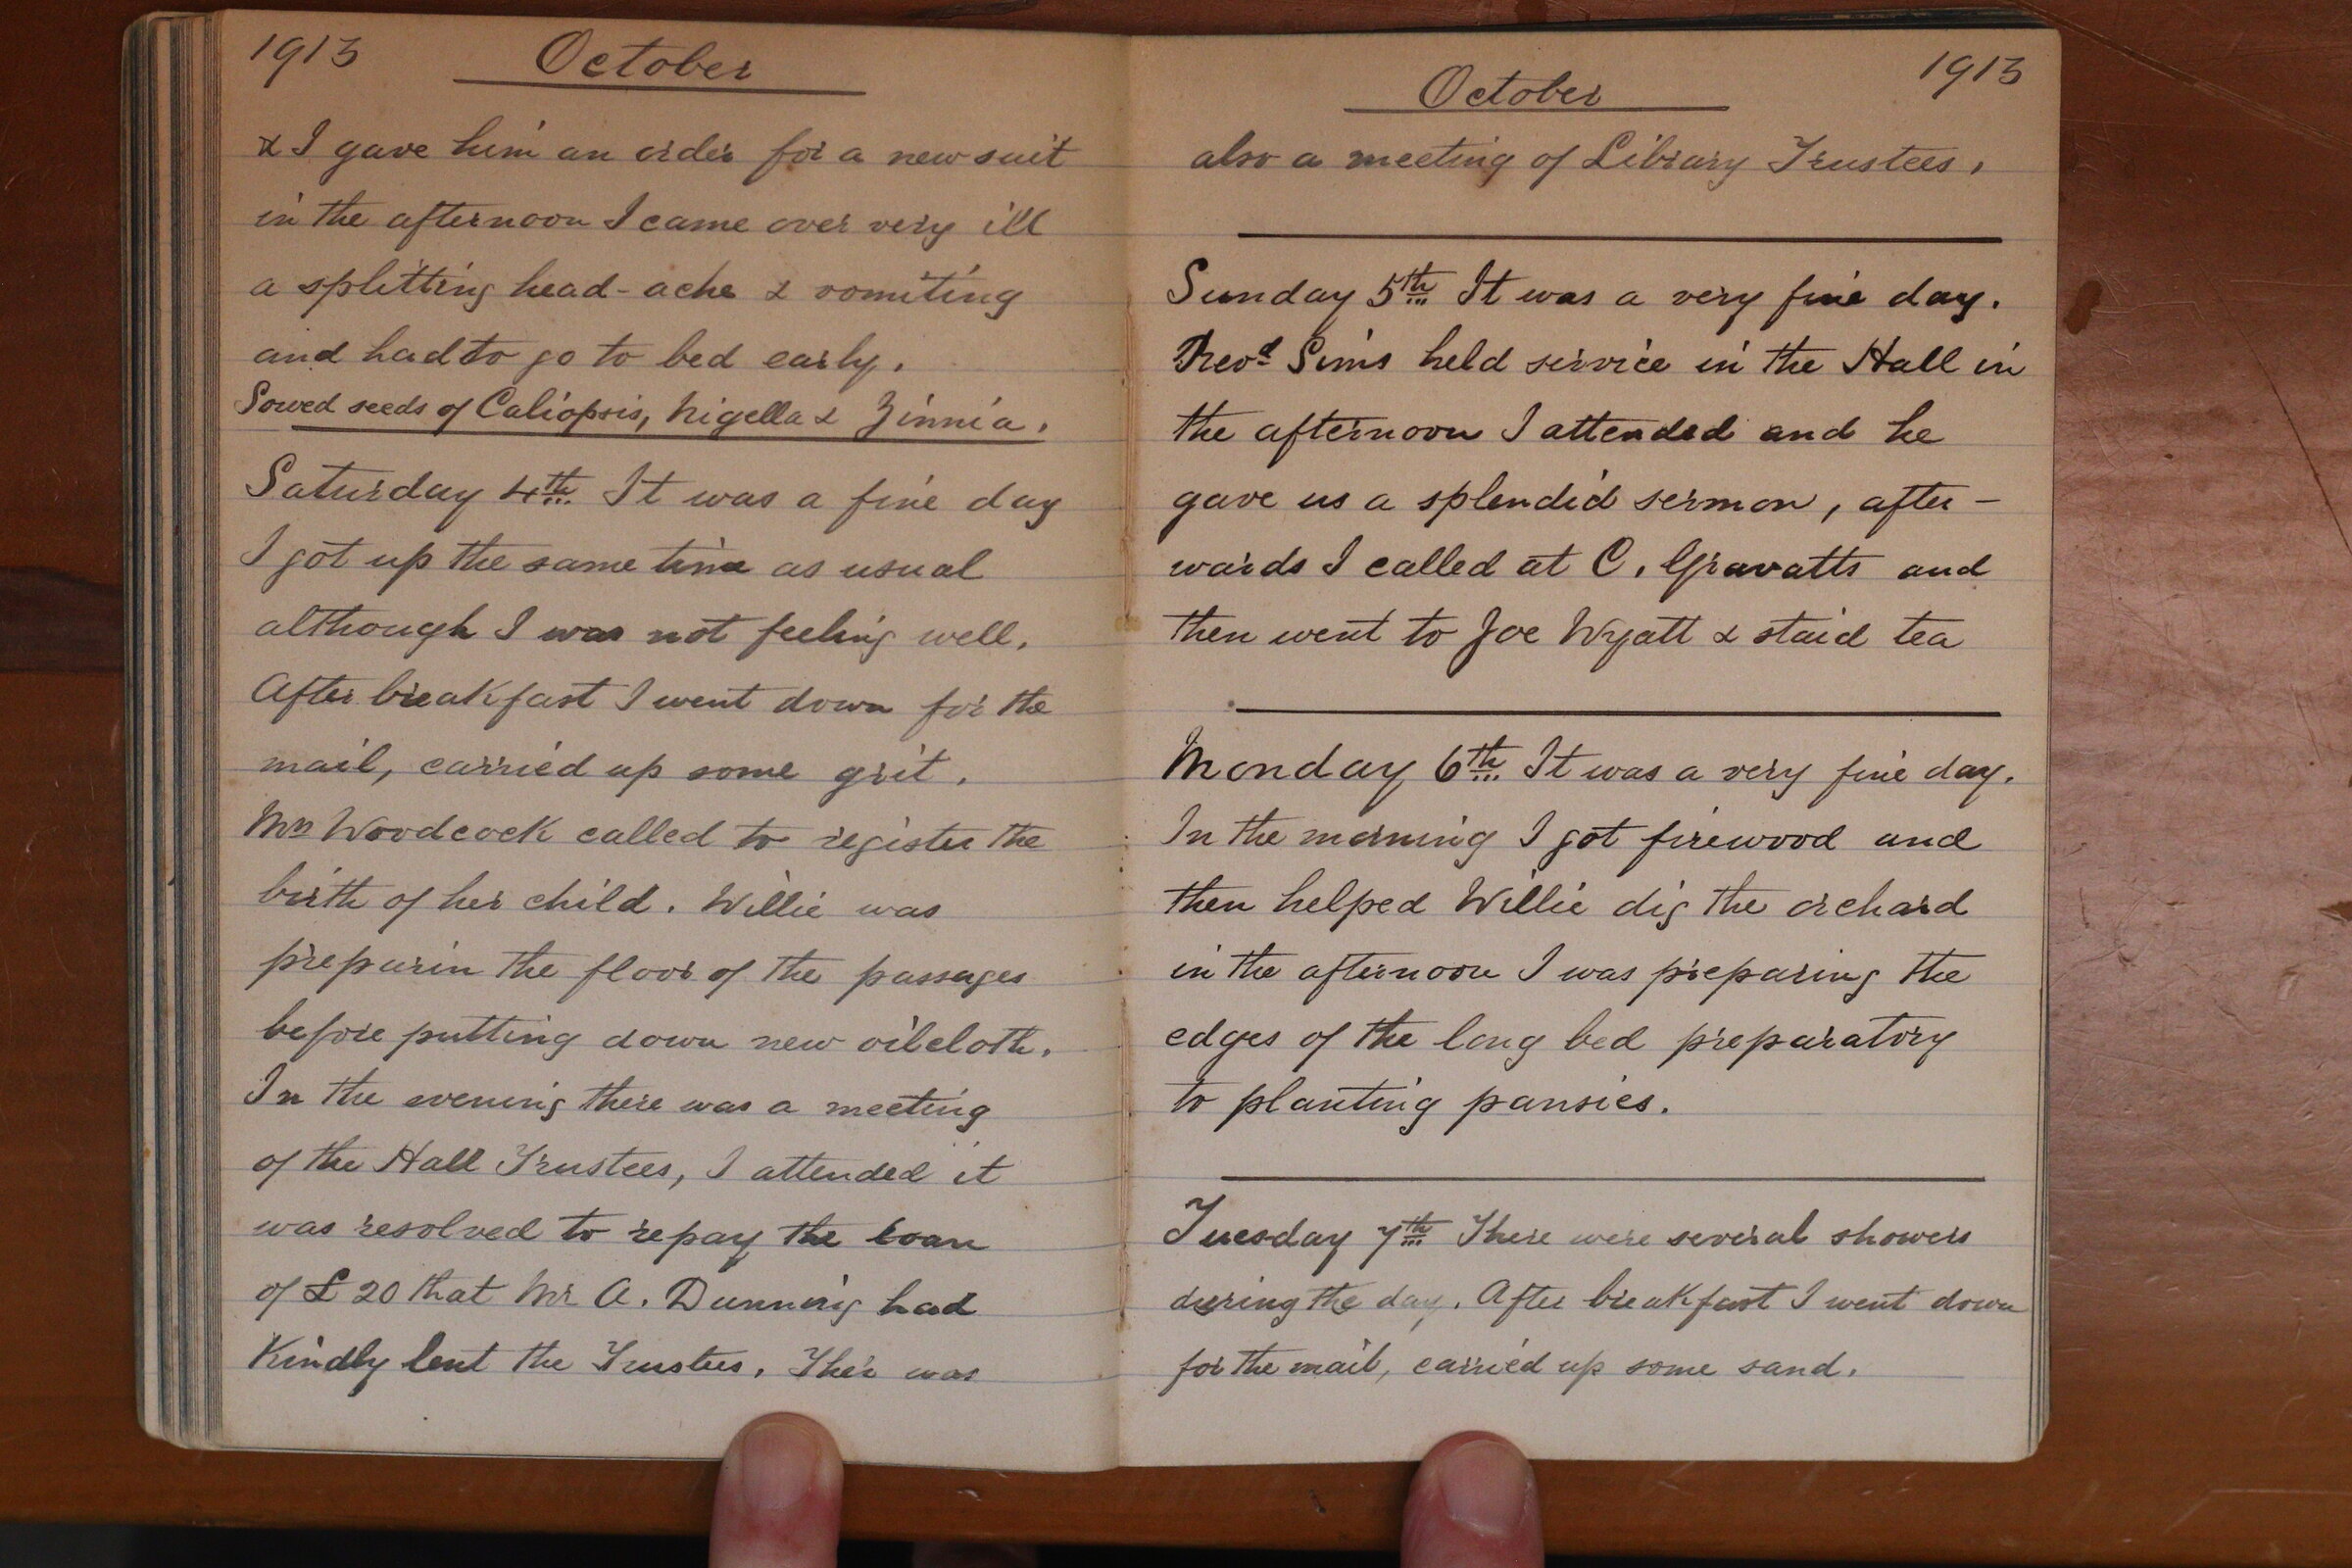 1913 October
& I gave him an order for a new suit
in the afternoon I came over very ill
a splitting head-ache & vomiting
and had to go to bed early.
Sowed seeds of Caliopsis, Nigella & Zinnia.
Saturday 4th It was a fine day
I got up the same time as usual
although I was not feeling well.
After breakfast I went down for the
mail, carried up some grit.
Mrs Woodcock called to register the
birth of her child. Willie was
preparin the floor of the passages
before putting down new oilcloth.
In the evening there was a meeting
of the Hall Trustees, I attended it
was resolved to repay the loan
of £20 that Mr A. Dunning had
Kindly lent the Trustees. Ther was
October 1913
also a meeting of Library Trustees.
Sunday 5th It was a very fine day.
Revd Sims held service in the Hall in
the afternoon I attended and he
gave us a splendid sermon, after-
wards I called at C. Gravatts and
then went to Joe Wyatt & staid tea
Monday 6th It was a very fine day.
In the morning I got firewood and
then helped Willie dig the orchard
in the afternoon I was preparing the
edges of the long bed preparatory
to planting pansies.
Tuesday 7th There were several showers
during the day. After breakfast I went down
for the mail, carried up some sand.